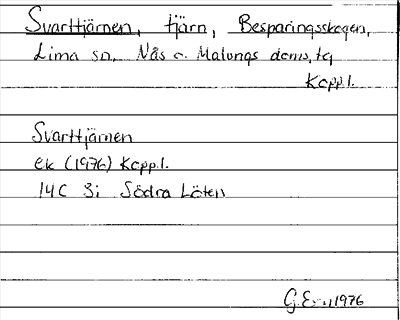 Svarttjärnen, tjärn, Besparingsskogen,
Lima sn. Nås o. Malungs doms.tg
Kopp.l.
Svarttjärnen
ek (1976) Kopp.l.
14C 3i Södra Löten
1976